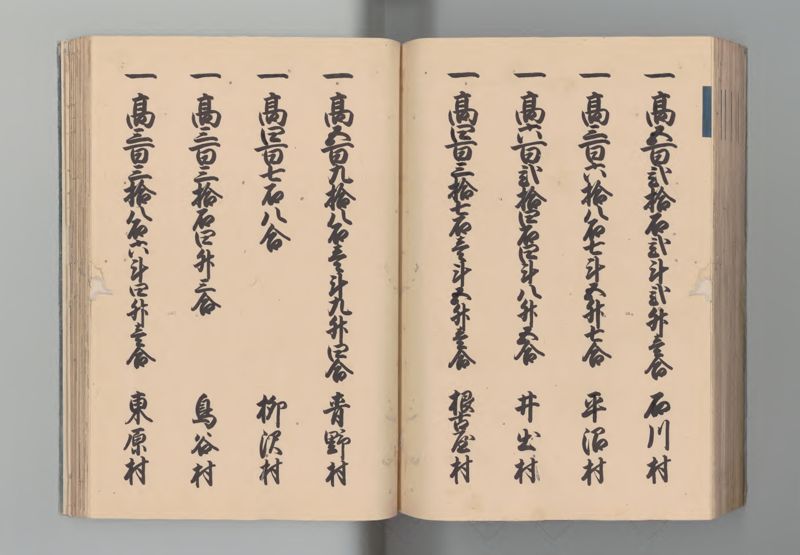 一 高五百弐拾石弐斗弐升壱合 石川村
一 高三百六拾八石七斗五升七合 平沼村
一 高六百弐拾四石四斗八升五合 井出村
一 高四百三拾七石壱斗五升壱合 根古屋村
一 高五百九拾八石壱斗九升四合 青野村
一 高四百七石八合 柳沢村
一 高三百三拾石四升三合 鳥谷村
一 高三百三拾八石六斗四升壱合 東原村